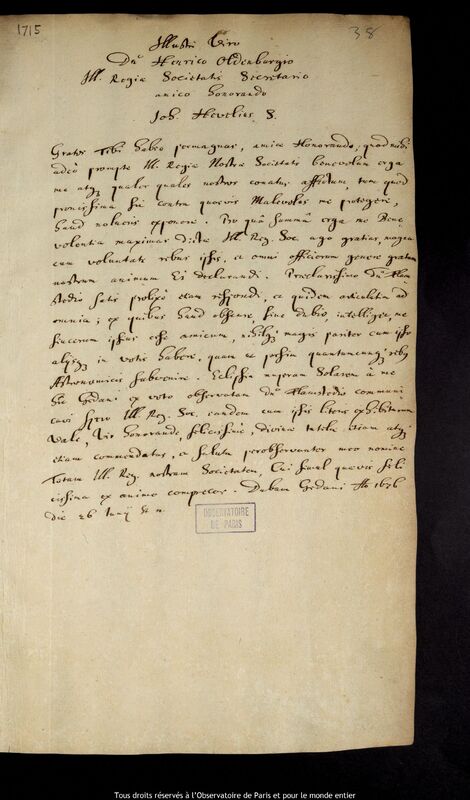 1715
38
Illustri Viro
Dn. Henrico Oldenburgio
Ill. Regiæ Societatis Secretario
amico honorando
Joh. Hevelius S.
Grates Tibi habeo permagnas, amice Honorande, quod mihi
adeò prompte Ill. Regiæ Nostræ Societatis benevolum erga
me atq; qualesquales nostros conatus affectum, tum quod
promtissima sit contra quosvis Malevolos me protegere,
haud nolueris exponere. Pro quâ summâ erga me Bene-
volentia maximas dictæ Ill. Reg. Soc. ago gratias, magna
cum voluntate rebus ipsis, ac omni officiorum genere gratum
nostrum animum Ei declarandi. Præclarissimo Dn. Flam
stedio satis prolixè etiam respondi, ac quidem articulatim ad
omnia; ex quibus haud obscurè, sine dubio, intelliget, me
sincerum ipsius esse amicum, nihilq; magis pariter cum ipso
alijsq; in votis habere, quam ut possim quantumcunq; rebus
Astronomicis subvenire. Eclipsin nuperam Solarem à me
hic Gedani ex voto observatam Dn. Flamstedio communi
cavi spero Ill. Reg. Soc. eandem cum ipsis literis exhibiturum
Vale, Vir honorande, felicissimè, divinæ tutelæ etiam atq;
etiam commendatus, ac saluta perobservanter meo nomine
Totam Ill. Reg. nostram Societatem, Cui simul quævis feli
cissima ex animo comprecor. Dabam Gedani Ao 1676
die 26 Junij st. n.
OBSERVATOIRE
DE PARIS
Tous droits réservés à l'Observatoire de Paris et pour le monde entier